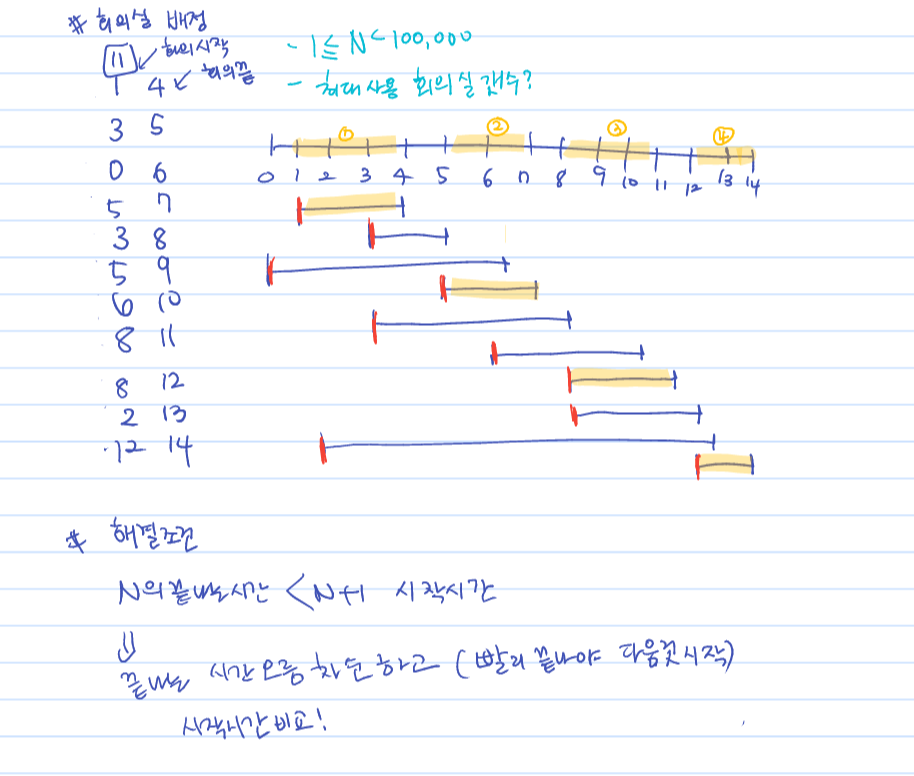 # 회의실 배정
11 ↙ 회의시작
1 4 ↙ 회의끝
- 1 ≤ N < 100,000
- 최대 사용 회의실 갯수?
3 5
0 6
5 7
3 8
5 9
6 10
8 11
8 12
2 13
12 14
① ② ③ ④
0 1 2 3 4 5 6 7 8 9 10 11 12 13 14
# 해결조건
N의 끝내는시간 < N+1 시작시간
⇓
끝내는 시간 오름차순 하고 (빨리 끝나야 다음것 시작)
시작시간 비교!